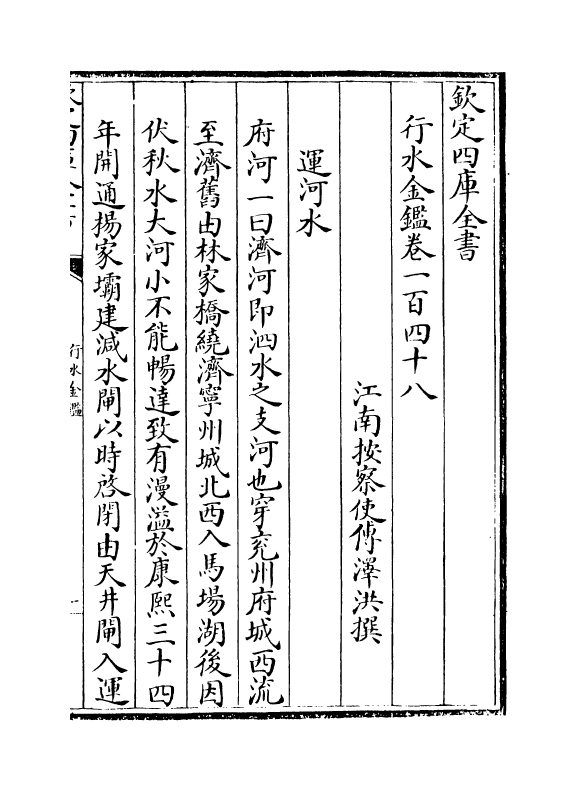 欽定四庫全書
行水金鑑卷一百四十八
江南按察使傅澤洪撰
運河水
府河一曰濟河即泗水之支河也穿兗州府城西流
至濟舊由林家橋繞濟寧州城北西入馬場湖後因
伏秋水大河小不能暢達致有漫溢於康熙三十四
年開通楊家壩建減水閘以時啓閉由天井閘入運
行水金鑑
一